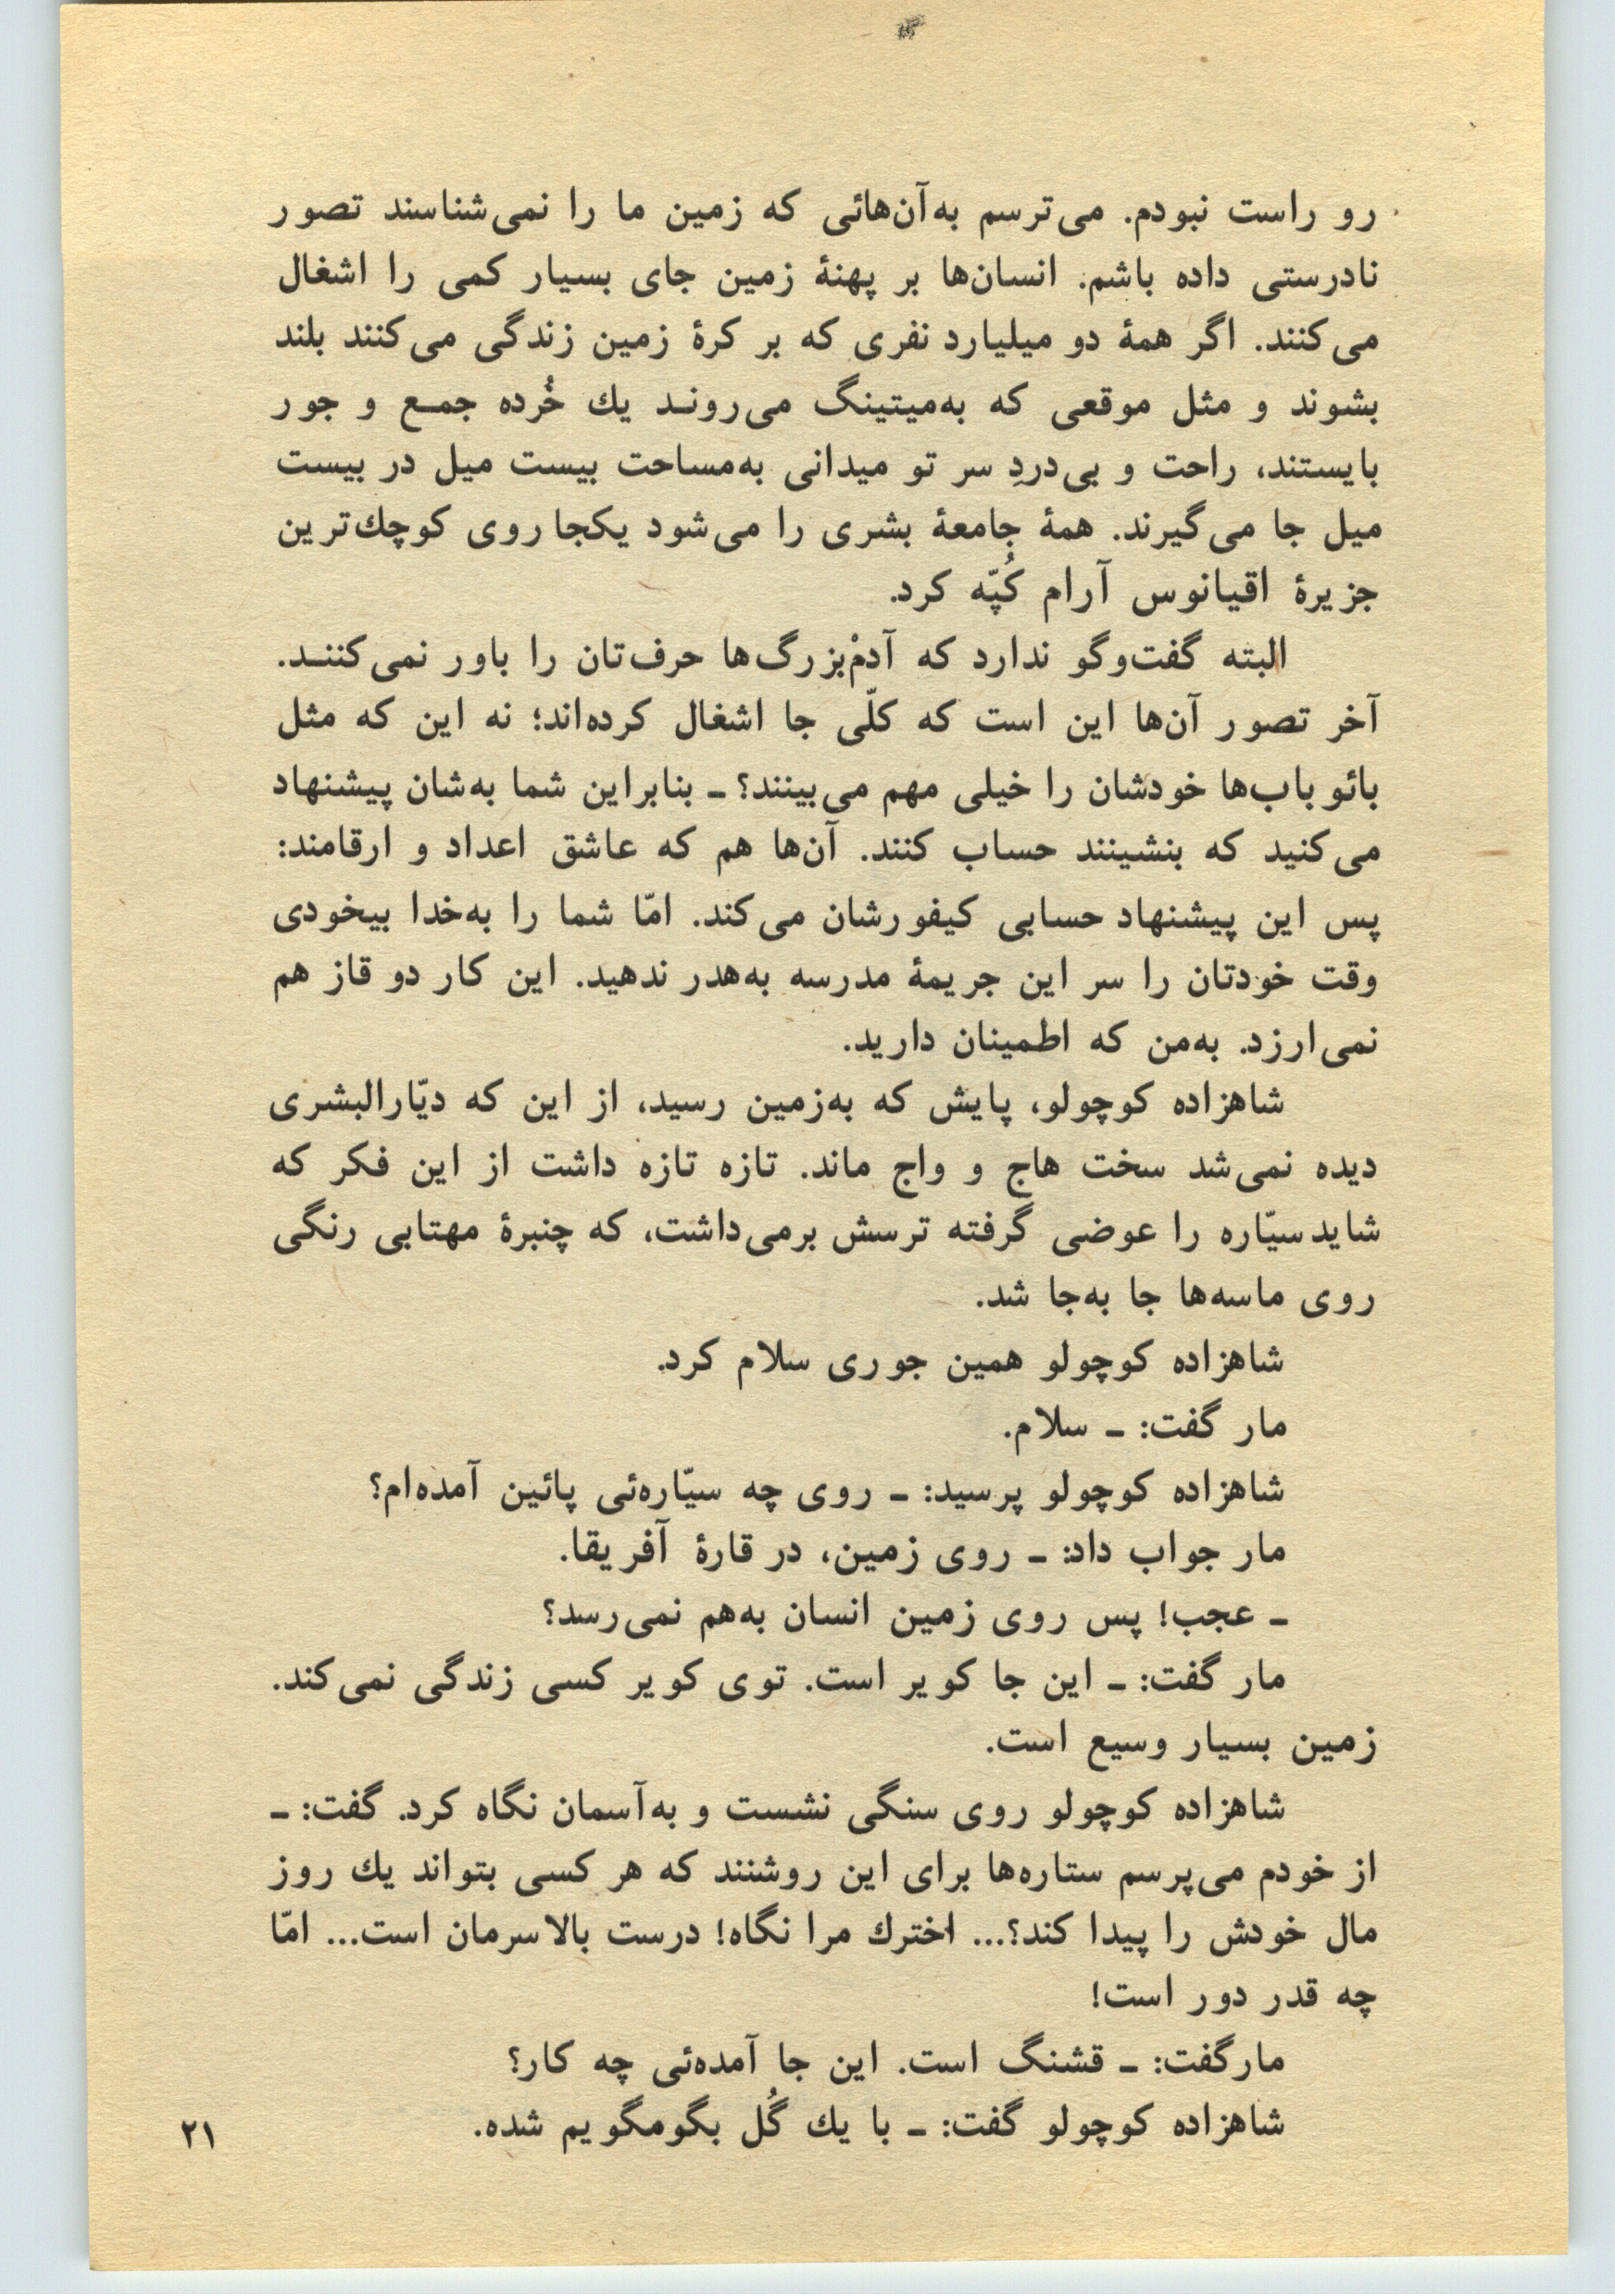 رو راست نبودم. می‌ترسم به‌آن‌هائی که زمین ما را نمی‌شناسند تصور
نادرستی داده باشم. انسان‌ها بر پهنهٔ زمین جای بسیار کمی را اشغال
می‌کنند. اگر همهٔ دو میلیارد نفری که بر کرهٔ زمین زندگی می‌کنند بلند
بشوند و مثل موقعی که به‌میتینگ می‌رونـد یك خُرده جمـع و جور
بایستند، راحت و بی‌دردِ سر تو میدانی به‌مساحت بیست میل در بیست
میل جا می‌گیرند. همهٔ جامعهٔ بشری را می‌شود یکجا روی کوچك‌ترین
جزیرهٔ اقیانوس آرام کُپّه کرد.
البته گفت‌وگو ندارد که آدمْ‌بزرگ‌ها حرف‌تان را باور نمی‌کننـد.
آخر تصور آن‌ها این است که کلّی جا اشغال کرده‌اند؛ نه این که مثل
بائوباب‌ها خودشان را خیلی مهم می‌بینند؟ ـ بنابراین شما به‌شان پیشنهاد
می‌کنید که بنشینند حساب کنند. آن‌ها هم که عاشق اعداد و ارقامند:
پس این پیشنهاد حسابی کیفورشان می‌کند. امّا شما را به‌خدا بیخودی
وقت خودتان را سر این جریمهٔ مدرسه به‌هدر ندهید. این کار دو قاز هم
نمی‌ارزد. به‌من که اطمینان دارید.
شاهزاده کوچولو، پایش که به‌زمین رسید، از این که دیّارالبشری
دیده نمی‌شد سخت هاج و واج ماند. تازه تازه داشت از این فکر که
شاید سیّاره را عوضی گرفته ترسش برمی‌داشت، که چنبرهٔ مهتابی رنگی
روی ماسه‌ها جا به‌جا شد.
شاهزاده کوچولو همین جوری سلام کرد.
مار گفت: ـ سلام.
شاهزاده کوچولو پرسید: ـ روی چه سیّاره‌ئی پائین آمده‌ام؟
مار جواب داد: ـ روی زمین، در قارهٔ آفریقا.
ـ عجب! پس روی زمین انسان به‌هم نمی‌رسد؟
مار گفت: ـ این جا کویر است. توی کویر کسی زندگی نمی‌کند.
زمین بسیار وسیع است.
شاهزاده کوچولو روی سنگی نشست و به‌آسمان نگاه کرد. گفت: ـ
از خودم می‌پرسم ستاره‌ها برای این روشنند که هر کسی بتواند یك روز
مال خودش را پیدا کند؟... اخترك مرا نگاه! درست بالاسرمان است... امّا
چه قدر دور است!
مارگفت: ـ قشنگ است. این جا آمده‌ئی چه کار؟
شاهزاده کوچولو گفت: ـ با یك گُل بگومگویم شده.
۲۱